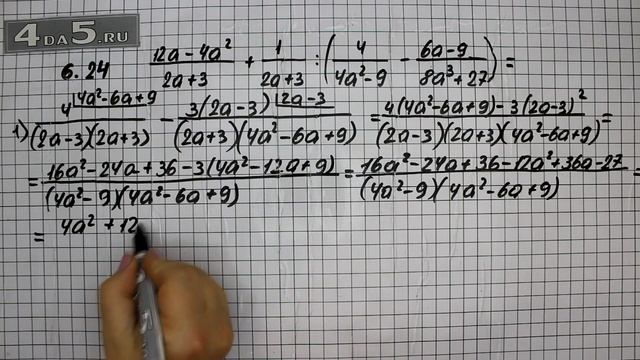 4DA5.RU
6.24 (12a-4a²)/(2a+3) + 1/(2a+3) : (4/(4a²-9) - (6a-9)/(8a³+27)) =
1) 4^{|4a²-6a+9}/((2a-3)(2a+3)) - 3(2a-3)^{|2a-3}/((2a+3)(4a²-6a+9)) = (4(4a²-6a+9)-3(2a-3)²)/((2a-3)(2a+3)(4a²-6a+9)) =
= (16a²-24a+36-3(4a²-12a+9))/((4a²-9)(4a²-6a+9)) = (16a²-24a+36-12a²+36a-27)/((4a²-9)(4a²-6a+9)) =
= 4a²+12